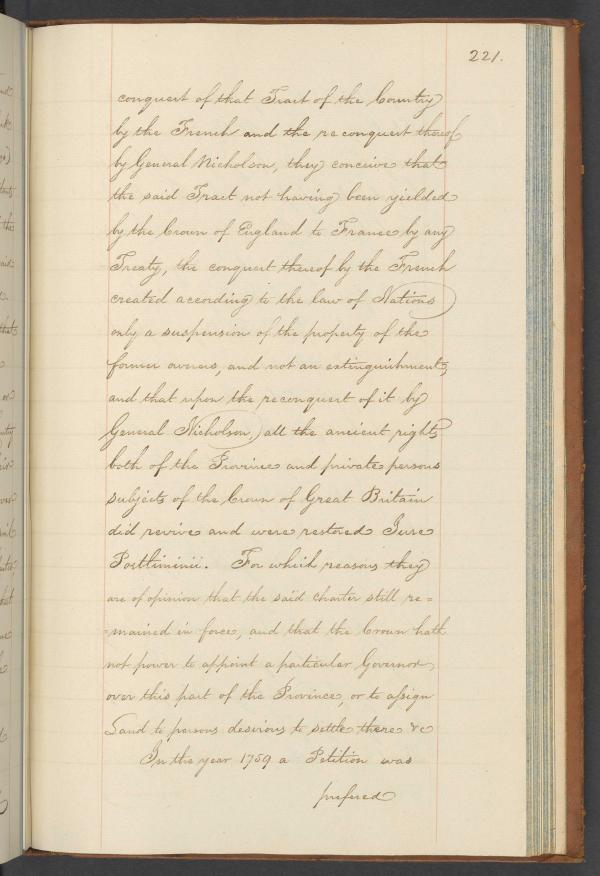 221.
conquest of that Tract of the Country
by the French and the re conquest thereof
by General Nicholson, they conceive that
the said Tract not having been yielded
by the Crown of England to France by any
Treaty, the conquest thereof by the French
created according to the law of Nations
only a suspension of the property of the
former owners, and not an extinguishment,
and that upon the reconquest of it by
General Nicholson, all the ancient rights
both of the Province and private persons
subjects of the Crown of Great Britain
did revive and were restored Jure
Postliminii. For which reasons they
are of opinion that the said charter still re=
=mained in force, and that the Crown hath
not power to appoint a particular Governor
over this part of the Province, or to assign
Land to persons desirious to settle there &c
In the year 1759 a Petition was
prefered